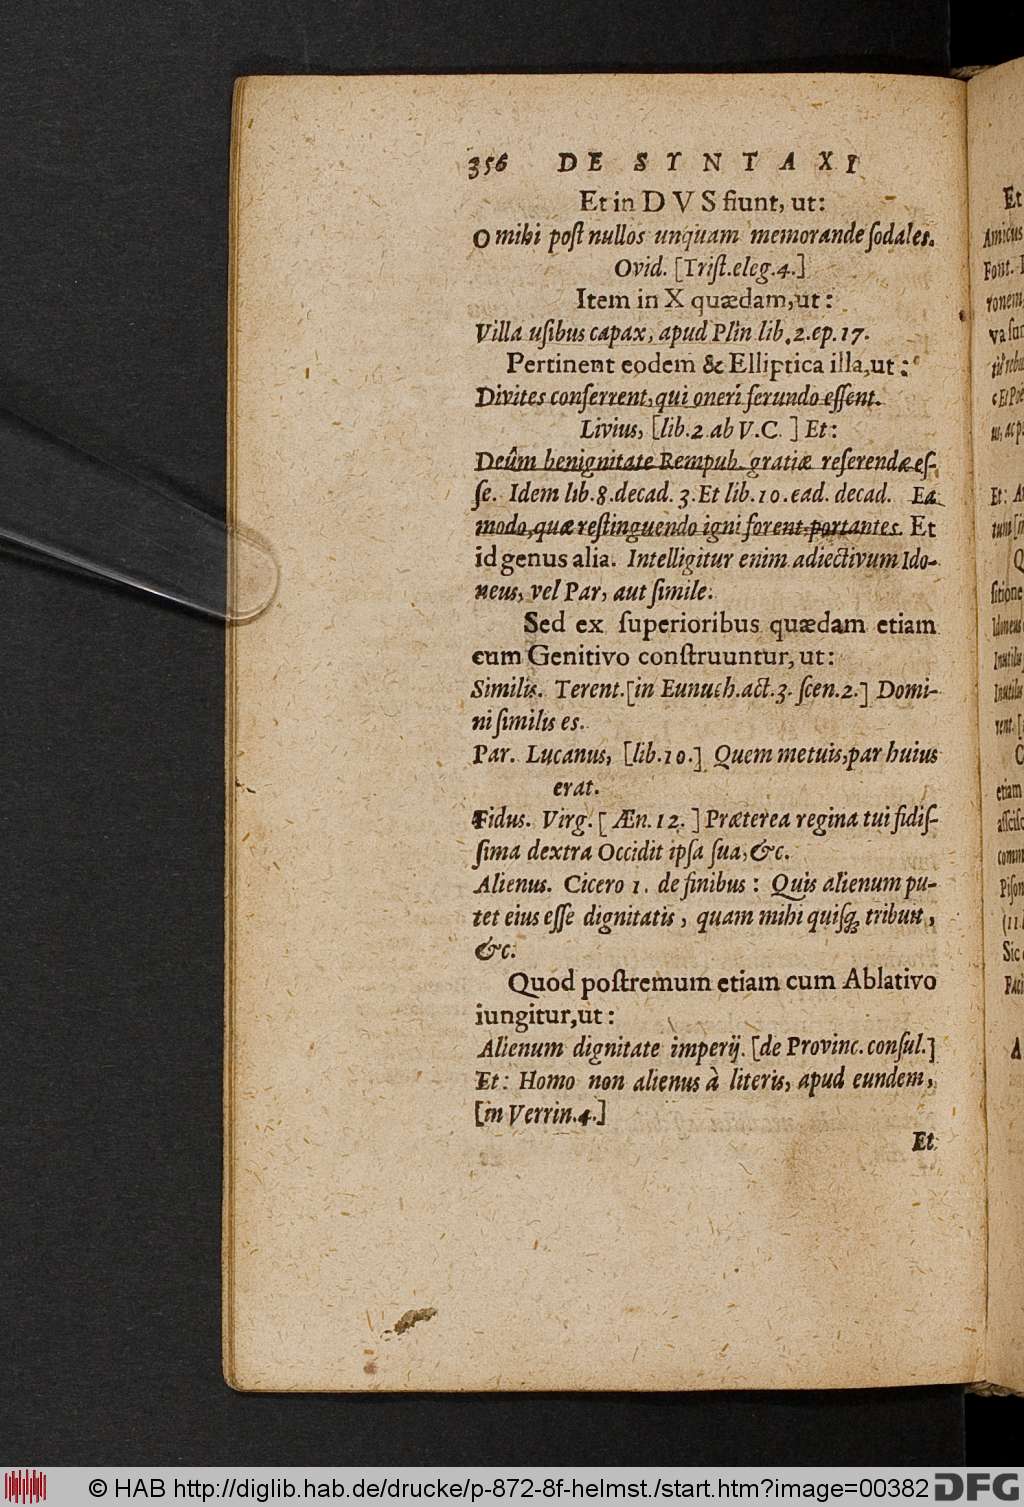 356 DE SYNTAXI
Et in DVS fiunt, ut:
O mihi poſt nullos unquam memorande ſodales.
Ovid. [Triſt.eleg.4.]
Item in X quædam, ut:
Villa uſibus capax, apud Plin lib.2.ep.17.
Pertinent eodem & Elliptica illa, ut:
Divites conferrent, qui oneri ferundo eſſent.
Livius, [lib.2 ab V.C. ] Et:
Deûm benignitate Rempub. gratiæ referendæ eſ-
ſe. Idem lib.8.decad. 3. Et lib.10.ead. decad. Ea
modo, quæ reſtinguendo igni forent portantes. Et
id genus alia. Intelligitur enim adiectivum Ido-
neus, vel Par, aut ſimile.
Sed ex ſuperioribus quædam etiam
cum Genitivo conſtruuntur, ut:
Similis. Terent.[in Eunuch.act.3. ſcen.2.] Domi-
ni ſimilis es.
Par. Lucanus, [lib.10.] Quem metuis, par huius
erat.
Fidus. Virg. [ Æn. 12. ] Præterea regina tui fidiſ-
ſima dextra Occidit ipſa ſua, &c.
Alienus. Cicero 1. de finibus : Quis alienum pu-
tet eius eſſe dignitatis , quam mihi quiſq; tribuit ,
&c.
Quod poſtremum etiam cum Ablativo
iungitur, ut:
Alienum dignitate imperij. [de Provinc. conſul.]
Et: Homo non alienus à literis, apud eundem,
[in Verrin.4.]
Et
Et
Amicus
Font.
ronem
va ſun
Et: A
Sic
A
© HAB http://diglib.hab.de/drucke/p-872-8f-helmst./start.htm?image=00382 DFG